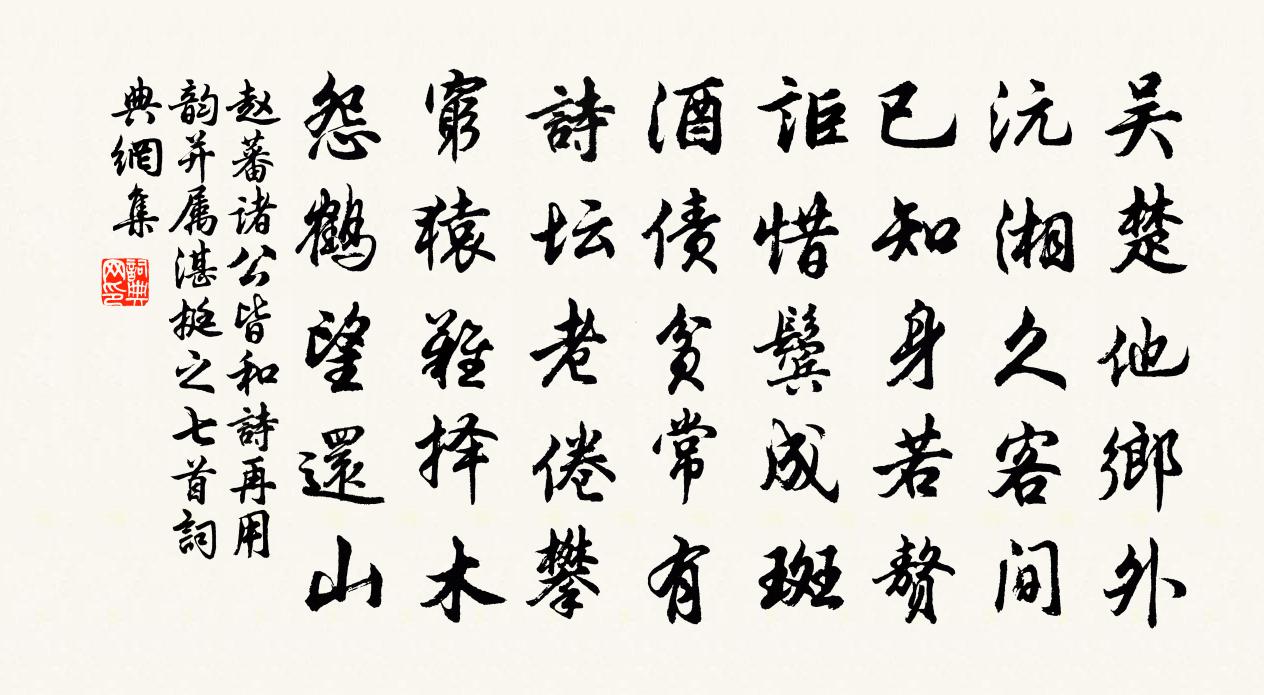 吴楚他鄉外
沅湘久客间
已知身若赘
詎惜鬓成斑
酒债贫常有
詩坛老倦攀
窮猿难择木
怨鶴望還山
赵蕃诸公皆和詩再用
韵并属湛挺之七首詞
典網集
詞典网印